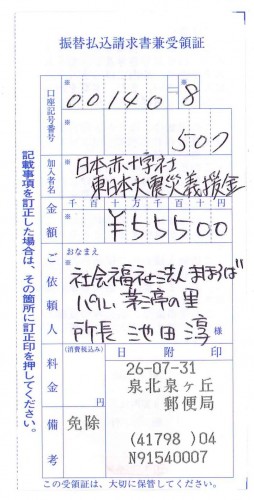 振替払込請求書兼受領証
口座記号番号
00140 8
507
加入者名
日本赤十字社
東日本大震災義援金
金額
千百十万千百十円
¥55500
ご依頼人
おなまえ
社会福祉法人まほろば
所長 池田 淳 様
料金
(消費税込み)
免除
備考
日附印
26-07-31
泉北泉ヶ丘
郵便局
(41798 )04
N91540007
記載事項を訂正した場合は、その箇所に訂正印を押してください。
この受領証は、大切に保管してください。